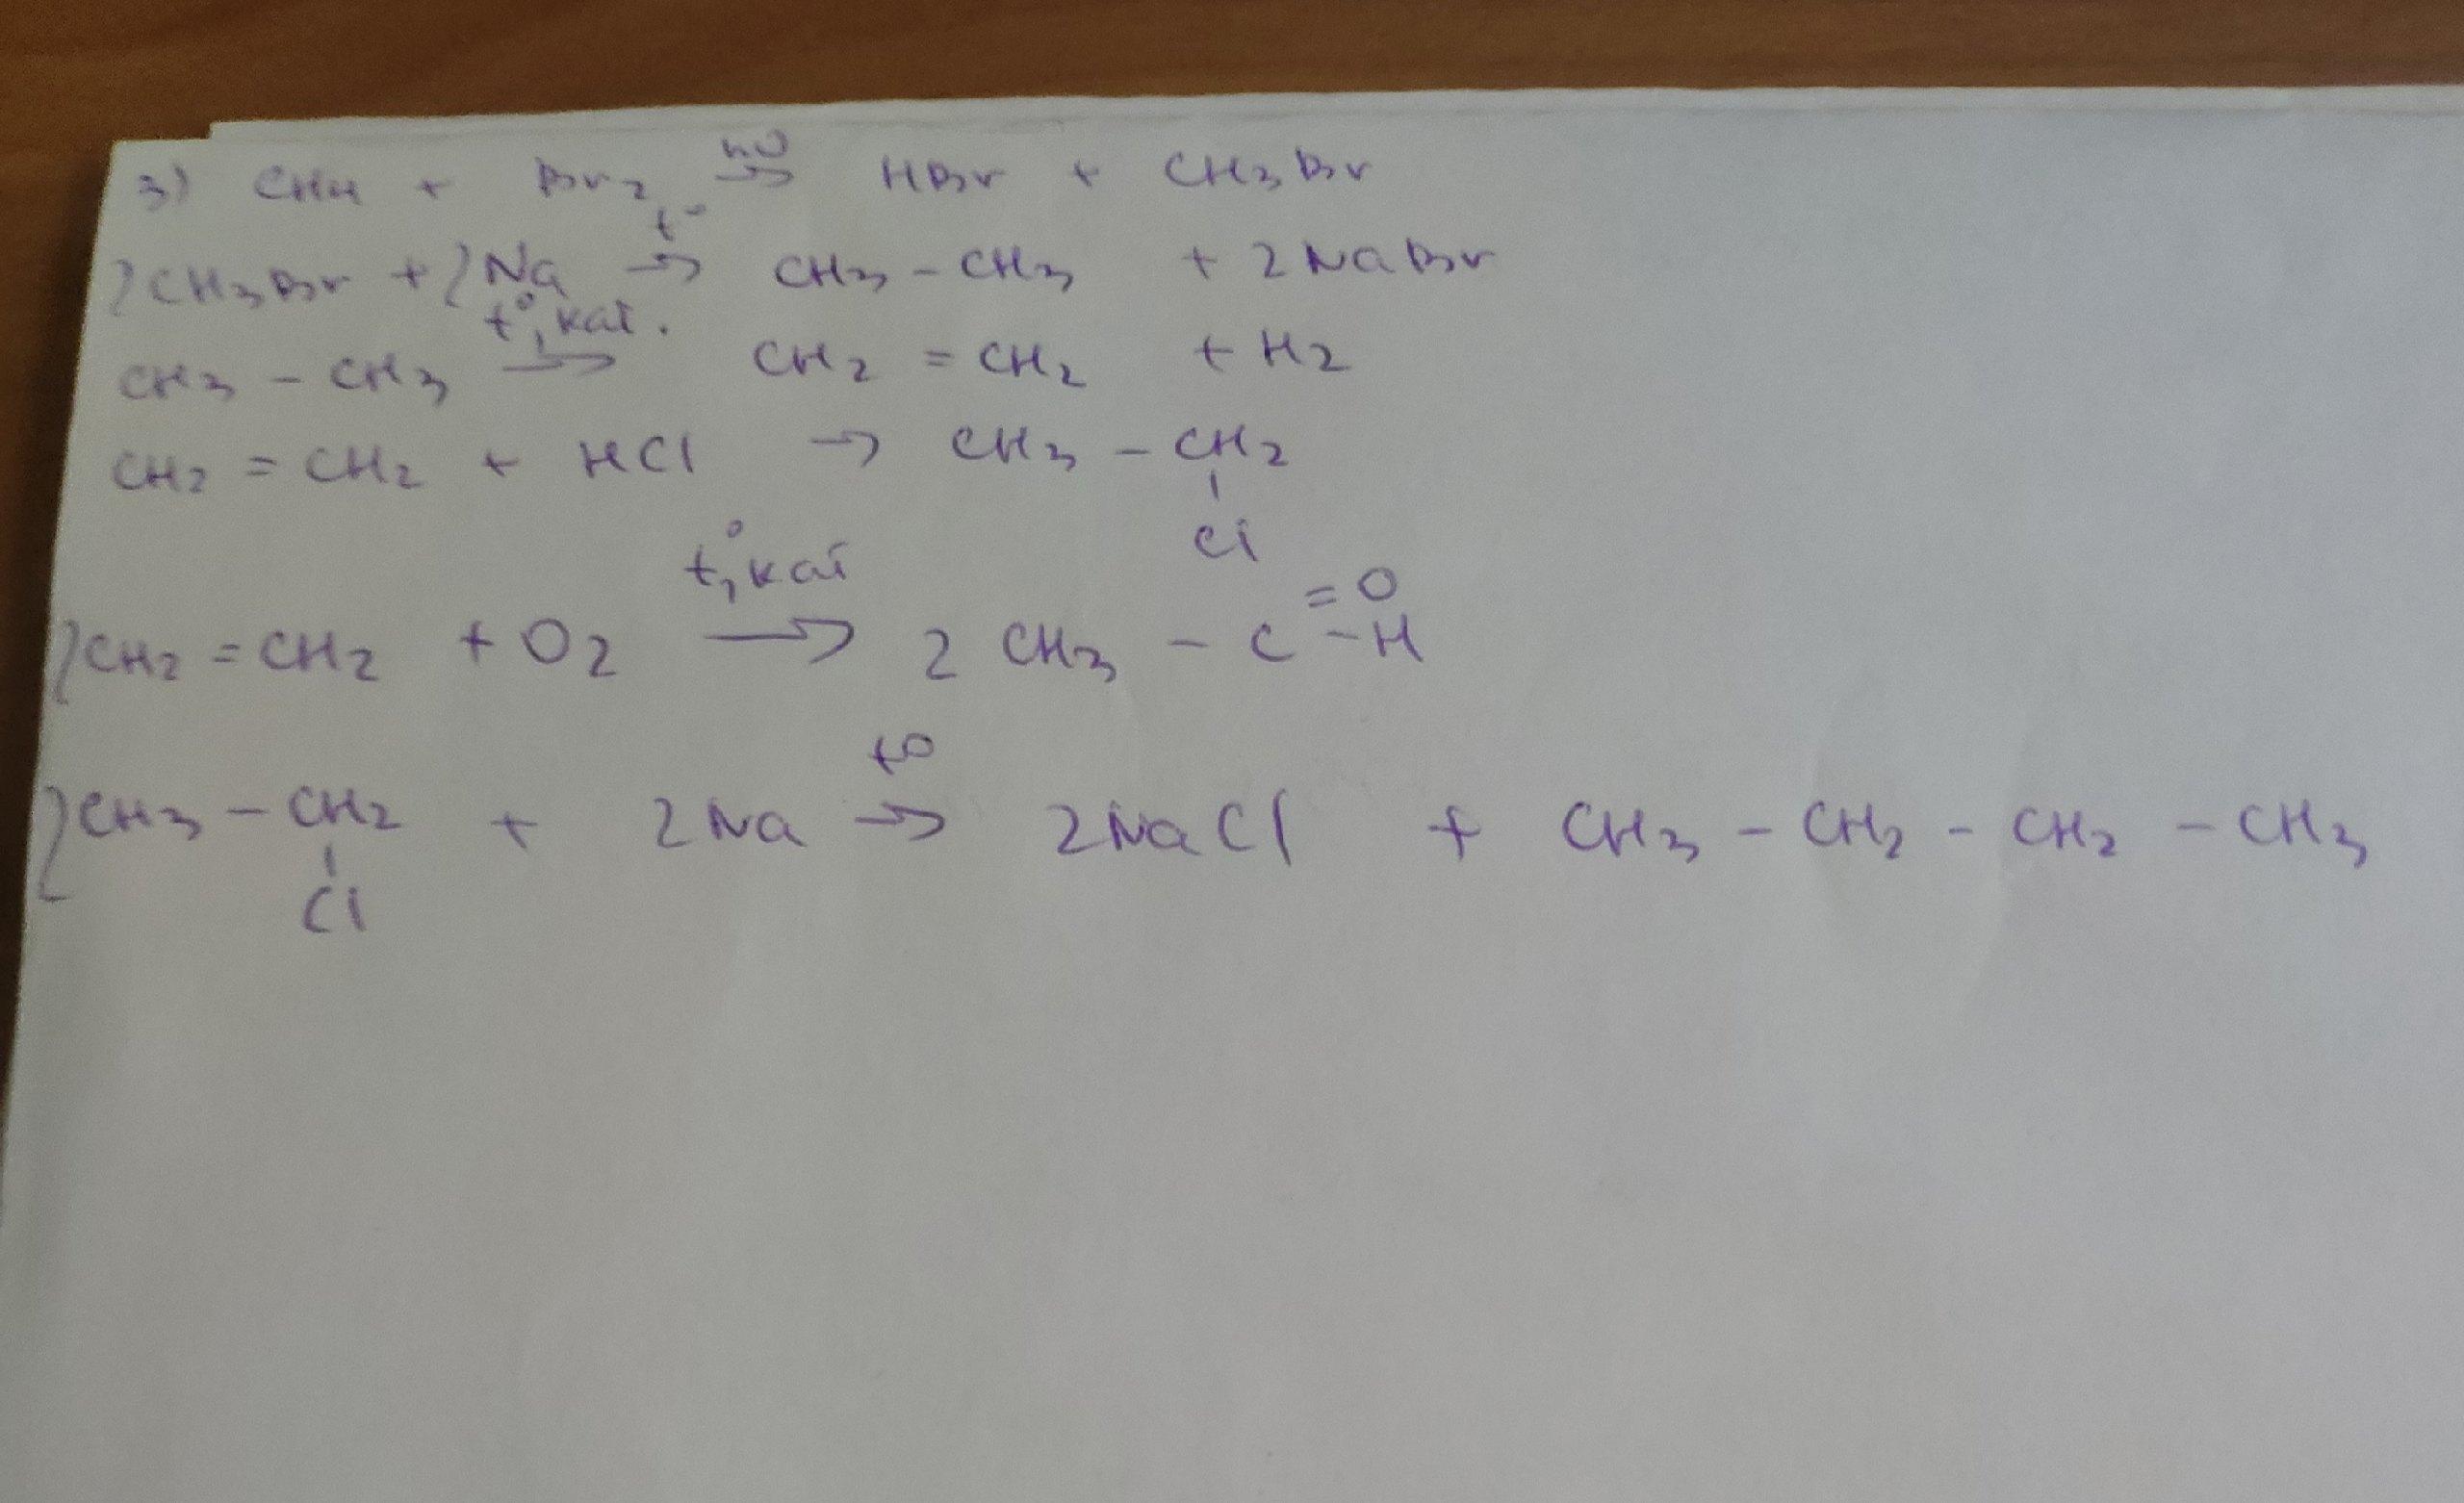 3) CH4 + Br2 hν→ HBr + CH3Br
2CH3Br + 2Na t°→ CH3 - CH3 + 2NaBr
CH3 - CH3 t°, кат. → CH2 = CH2 + H2
CH2 = CH2 + HCl → CH3 - CH2
Cl
t°, кат
= O
2CH2 = CH2 + O2 → 2 CH3 - C - H
t°
2CH3 - CH2 + 2Na → 2NaCl + CH3 - CH2 - CH2 - CH3
Cl